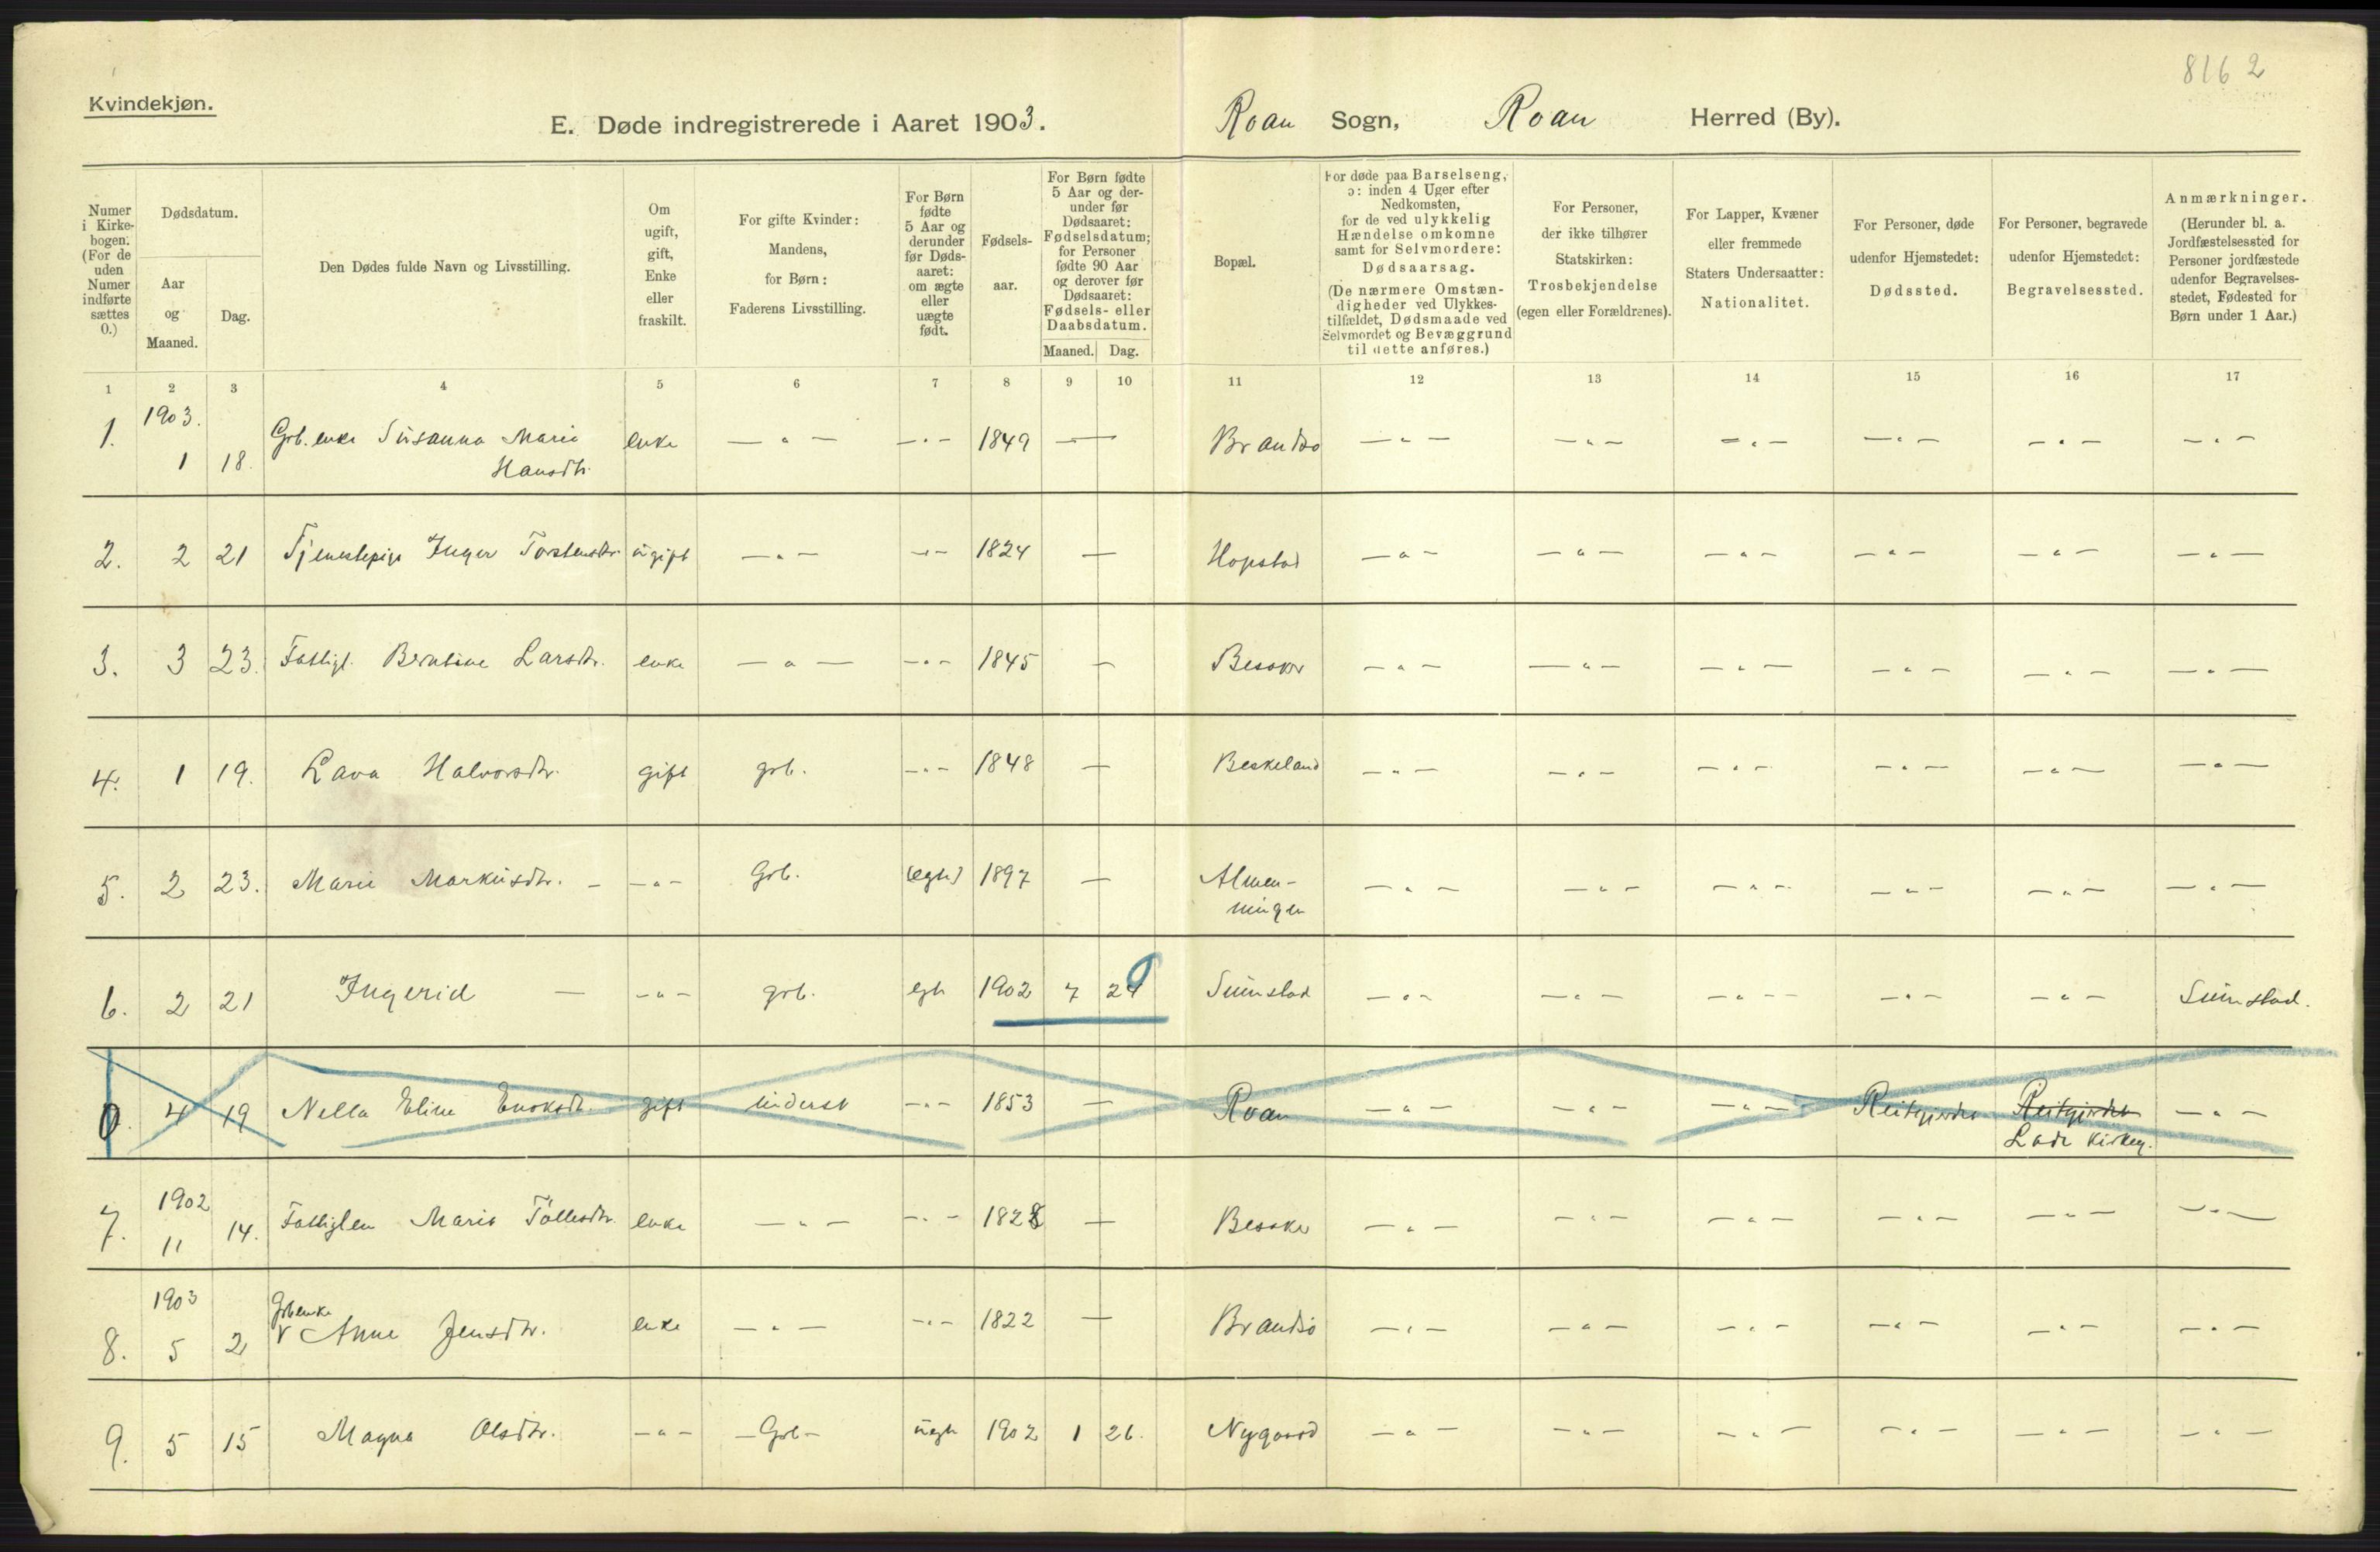 8162
Kvindekjøn.
E. Døde indregistrerede i Aaret 1903.
Roan Sogn, Roan Herred (By).
Numer i Kirkebogen. (For de uden Numer indførte sættes 0.)
Dødsdatum.
Aar og Maaned.
Dag.
Den Dødes fulde Navn og Livsstilling.
Om ugift, gift, Enke eller fraskilt.
For gifte Kvinder: Mandens, for Børn: Faderens Livsstilling.
For Børn fødte 5 Aar og derunder før Dødsaaret: om ægte eller uægte født.
Fødselsaar.
For Børn fødte 5 Aar og derunder før Dødsaaret: Fødselsdatum; for Personer fødte 90 Aar og derover før Dødsaaret: Fødsels- eller Daabsdatum.
Maaned. Dag.
Bopæl.
For døde paa Barselseng, ɔ: inden 4 Uger efter Nedkomsten, for de ved ulykkelig Hændelse omkomne samt for Selvmordere: Dødsaarsag. (De nærmere Omstændigheder ved Ulykkestilfældet, Dødsmaade ved Selvmordet og Bevæggrund til dette anføres.)
For Personer, der ikke tilhører Statskirken: Trosbekjendelse (egen eller Forældrenes).
For Lapper, Kvæner eller fremmede Staters Undersaatter: Nationalitet.
For Personer, døde udenfor Hjemstedet: Dødssted.
For Personer, begravede udenfor Hjemstedet: Begravelsessted.
Anmærkninger. (Herunder bl. a. Jordfæstelsessted for Personer jordfæstede udenfor Begravelsesstedet, Fødested for Børn under 1 Aar.)
1 2 3 4 5 6 7 8 9 10 11 12 13 14 15 16 17
1. 1903. 1 18. Grb. enke Susanna Marie Hansdtr. enke — " — — " — 1849 — Brandsø — " — — " — — " — — " — — " — — " —
2. 2 21 Tjenestepige Inger Torstensdtr. ugift — " — — " — 1824 — Hopstad — " — — " — — " — — " — — " — — " —
3. 3 23. Fattigl. Berntine Larsdtr. enke — " — — " — 1845 — Besaker — " — — " — — " — — " — — " — — " —
4. 1 19. Lava Halvorsdtr. gift grb. — " — 1848 — Beskeland — " — — " — — " — — " — — " — — " —
5. 2 23. Marie Markusdtr. — — " — Grb. (egte) 1897 — Almenningen — " — — " — — " — — " — — " — — " —
6. 2 21 Ingerid — — " — grb. egte 1902 7 29 Sumstad — " — — " — — " — — " — — " — Sumstad.
0. 4 19 Nella Eline Enoksdtr. gift inderst — " — 1853 — Roan — " — — " — — " — Reitgjerdet Reitgjerdet Lade Kirkeg. — " —
7. 1902 11 14. Fattiglem Marie Tollesdtr. enke — " — — " — 1828 — Besaker — " — — " — — " — — " — — " — — " —
8. 1903 5 2 Grb enke V Anne Jensdtr. enke — " — — " — 1822 — Brandsø — " — — " — — " — — " — — " — — " —
9. 5 15 Magna Olsdtr. — " — — Grb — uegte 1902 1 26. Nygaard — " — — " — — " — — " — — " — — " —